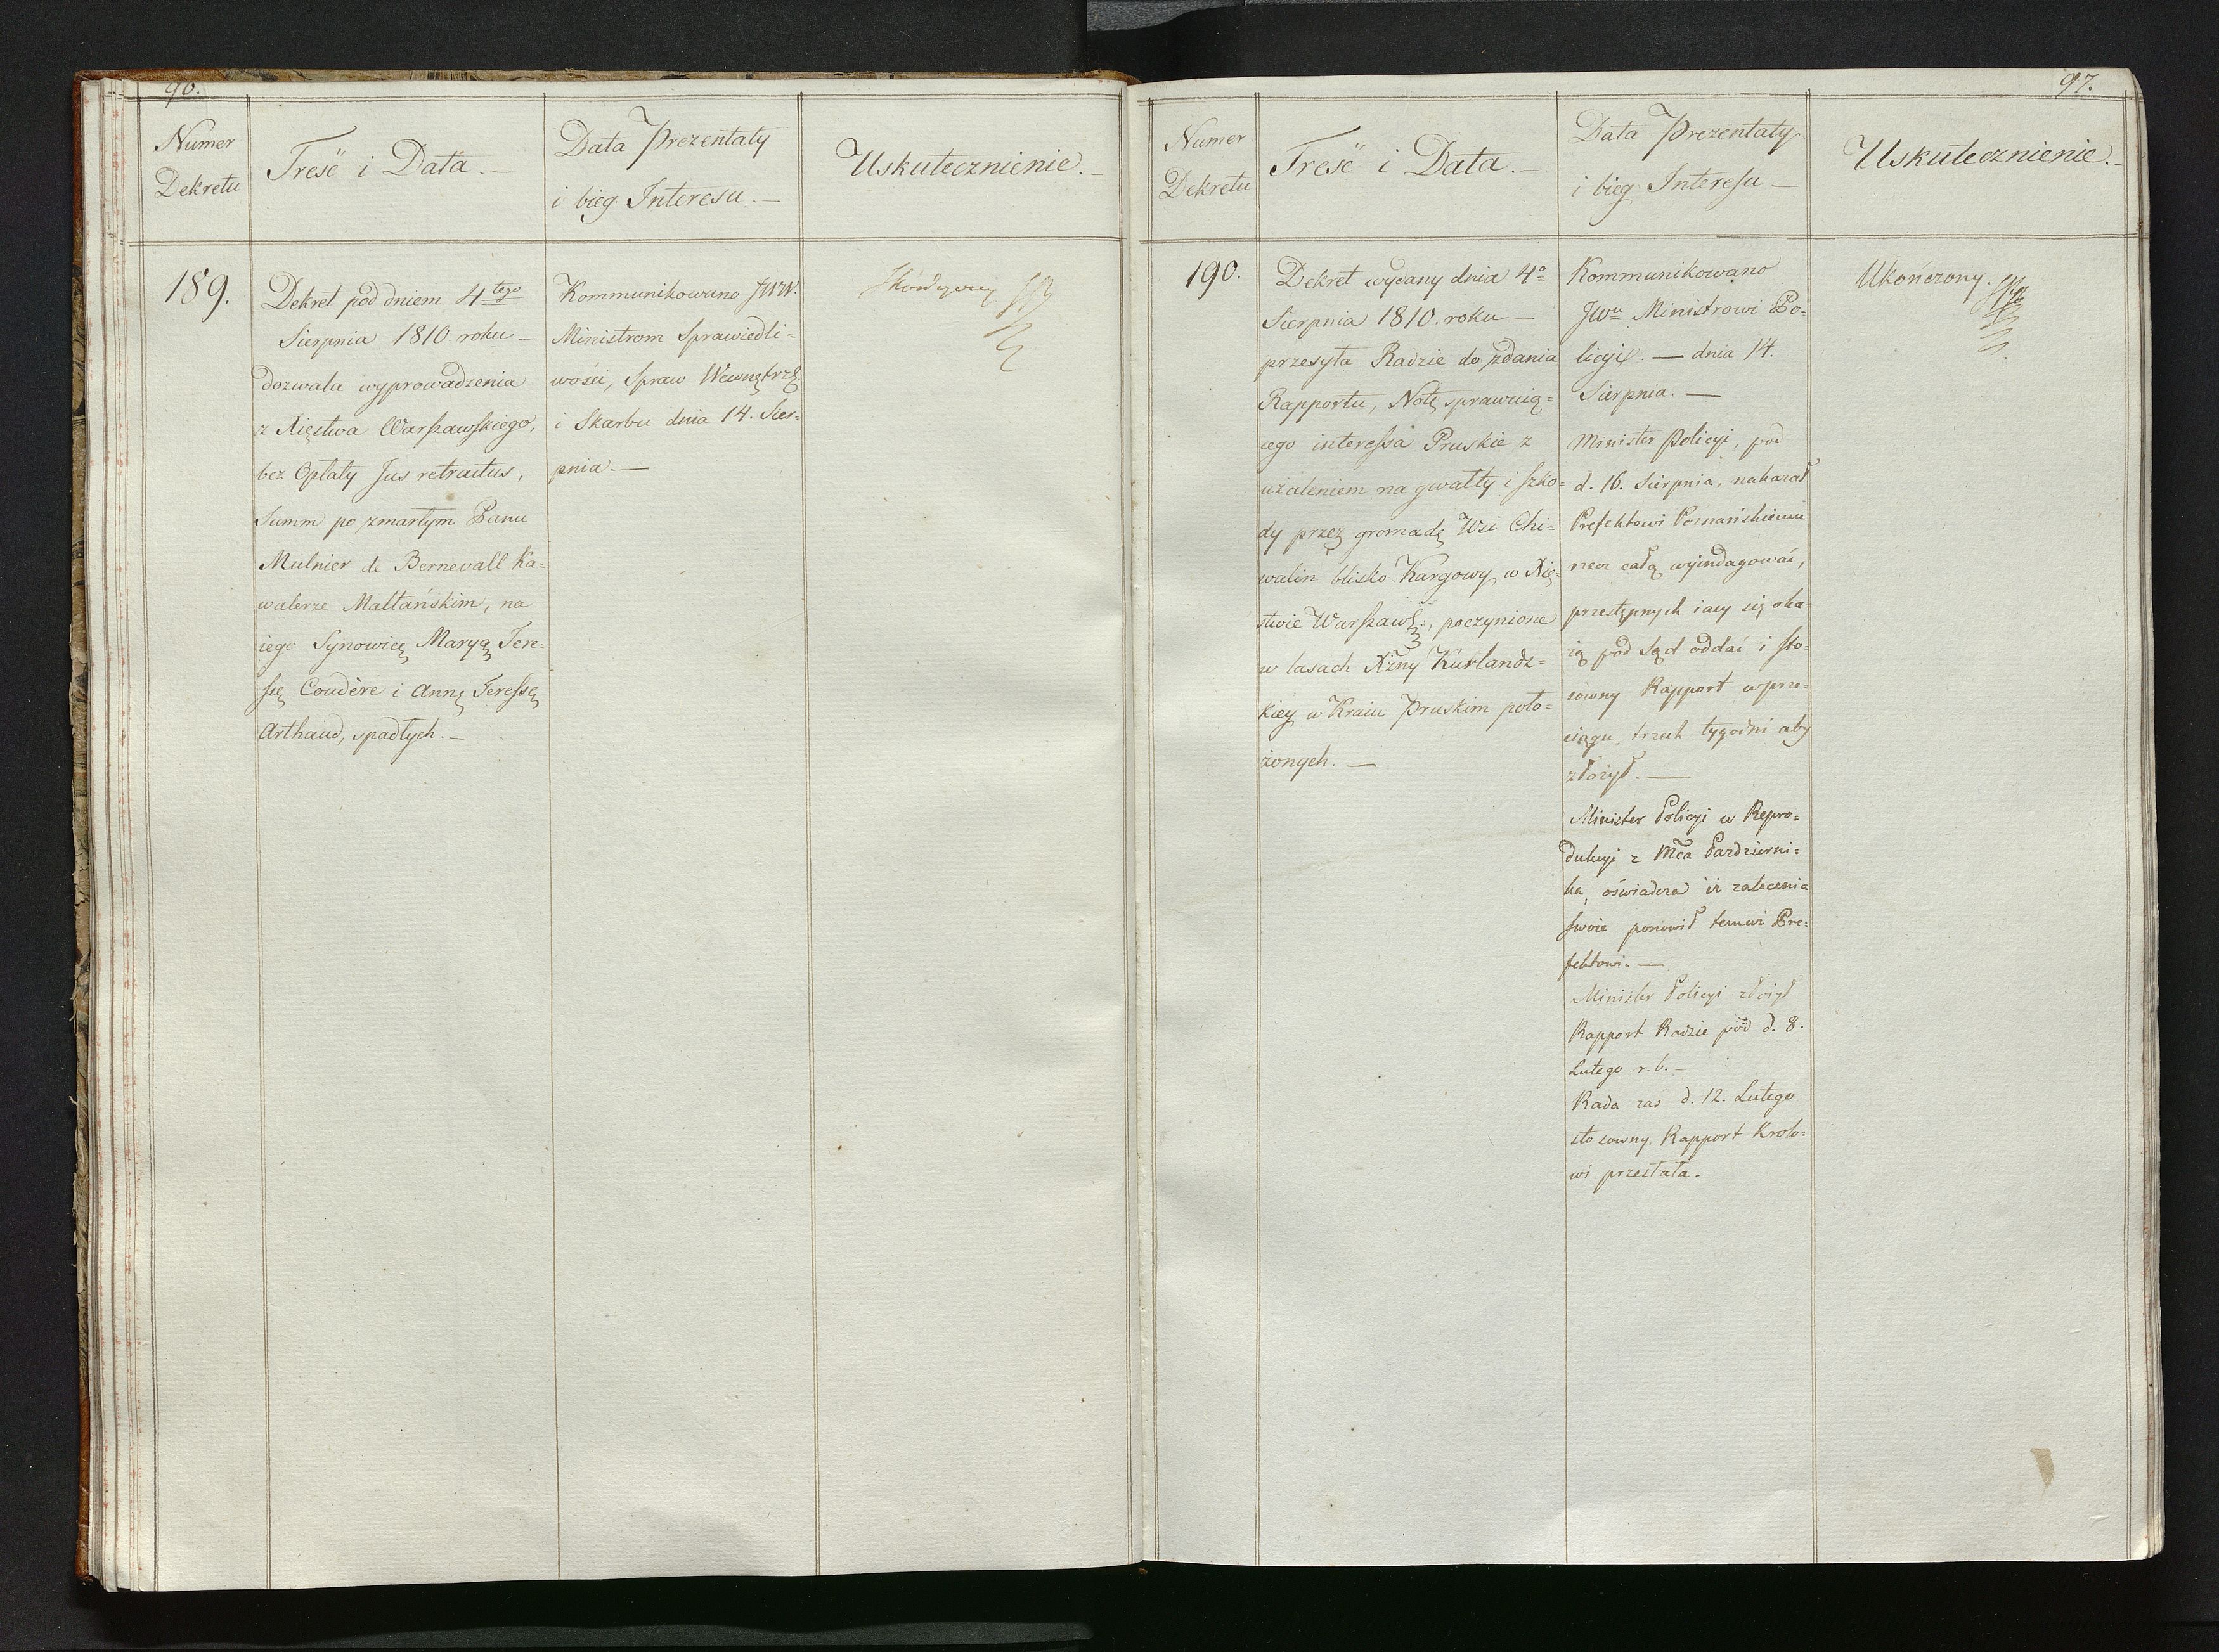 90.
Numer
Dekretu
Treść i Data.—
Data Prezentaty
i bieg Interesu.—
Uskutecznienie.—
189.
Dekret pod dniem 4tego
Sierpnia 1810. roku—
dozwala wyprowadzenia
z Xięstwa Warszawskiego,
bez Opłaty Jus retractus,
Summ po zmarłym Panu
Mulnier de Bernevall Ka=
walerze Maltańskim, na
iego Synowicę Maryą Tere=
ssę Coudère i Annę Teressę
Arthaud, spadłych.—
Kommunikowano JWW.
Ministrom Sprawiedli=
wości, Spraw Wewnętrz:
i Skarbu dnia 14. Sier=
pnia.—
97.
Numer
Dekretu
Treść i Data.—
Data Prezentaty
i bieg Interessu—
Uskutecznienie.—
190.
Dekret wydany dnia 4o
Sierpnia 1810. roku—
przesyła Radzie do zdania
Rapportu, Notę sprawuią=
cego interessa Pruskie z
użaleniem na gwałty i szko=
dy przez gromadę Wsi Chi=
walin blisko Kargowy w Xię=
stwie Warszaws:, poczynione
w lasach Xżny Kurlandz=
kiey w Kraiu Pruskim poło=
żonych.—
Kommunikowano
JWu Ministrowi Po=
licyi.— dnia 14.
Sierpnia.—
Minister Policyi, pod
d. 16. Sierpnia, nakazał
Prefektowi Poznańskiemu
rzecz całą wyindagować,
przestępnych iacy się oka=
żą pod Sąd oddać i sto=
sowny Rapport w prze=
ciągu trzech tygodni aby
złożył.—
Minister Policyi w Repro=
dukcyi z Mca Pazdzierni=
ka, oświadcza iż zalecenia
swoie ponowił temuż Pre=
fektowi.—
Minister Policyi złożył
Rapport Radzie pod d. 8.
Lutego r. b.—
Rada zas d. 12. Lutego
stosowny Rapport Krolo=
wi przesłała.
Ukonczony.